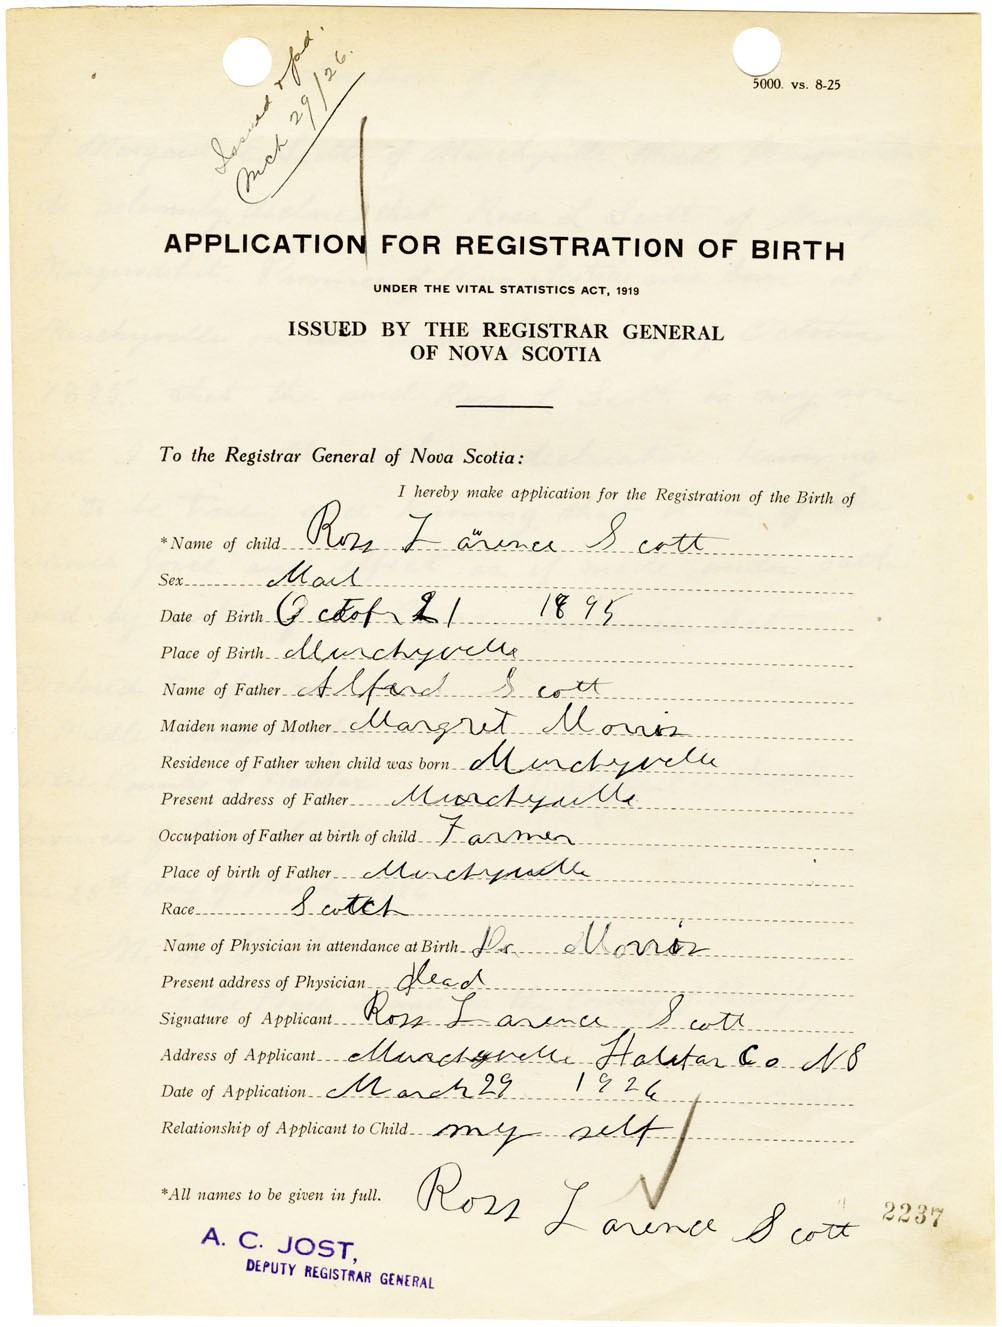 Issued & pd.
Mch 29/26.
5000. vs. 8-25
APPLICATION FOR REGISTRATION OF BIRTH
UNDER THE VITAL STATISTICS ACT, 1919
ISSUED BY THE REGISTRAR GENERAL
OF NOVA SCOTIA
To the Registrar General of Nova Scotia:
I hereby make application for the Registration of the Birth of
*Name of child Ross Lawrence Scott
Sex Mail
Date of Birth October 21 1895
Place of Birth Murchyville
Name of Father Alfard Scott
Maiden name of Mother Margret Morris
Residence of Father when child was born Murchyville
Present address of Father Murchyville
Occupation of Father at birth of child Farmer
Place of birth of Father Murchyville
Race Scotch
Name of Physician in attendance at Birth Dr Morris
Present address of Physician Dead
Signature of Applicant Ross Larence Scott
Address of Applicant Murchyville Halifax Co NS
Date of Application March 29 1926
Relationship of Applicant to Child my self
*All names to be given in full. Ross Larence Scott
2237
A. C. JOST,
DEPUTY REGISTRAR GENERAL